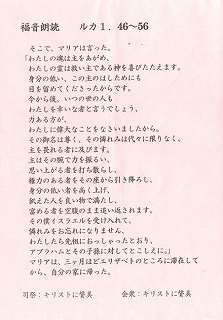 福音朗読　ルカ１．46〜56
そこで、マリアは言った。
「わたしの魂は主をあがめ、
わたしの霊は救い主である神を喜びたたえます。
身分の低い、この主のはしためにも
目を留めてくださったからです。
今から後、いつの世の人も
わたしを幸いな者と言うでしょう、
力ある方が、
わたしに偉大なことをなさいましたから。
その御名は尊く、その憐れみは代々に限りなく、
主を畏れる者に及びます。
主はその腕で力を振るい、
思い上がる者を打ち散らし、
権力のある者をその座から引き降ろし、
身分の低い者を高く上げ、
飢えた人を良い物で満たし、
富める者を空腹のまま追い返されます。
その僕イスラエルを受け入れて、
憐れみをお忘れになりません、
わたしたちの先祖におっしゃったとおり、
アブラハムとその子孫に対してとこしえに。」
マリアは、三か月ほどエリザベトのところに滞在して
から、自分の家に帰った。
司祭：キリストに賛美　　会衆：キリストに賛美